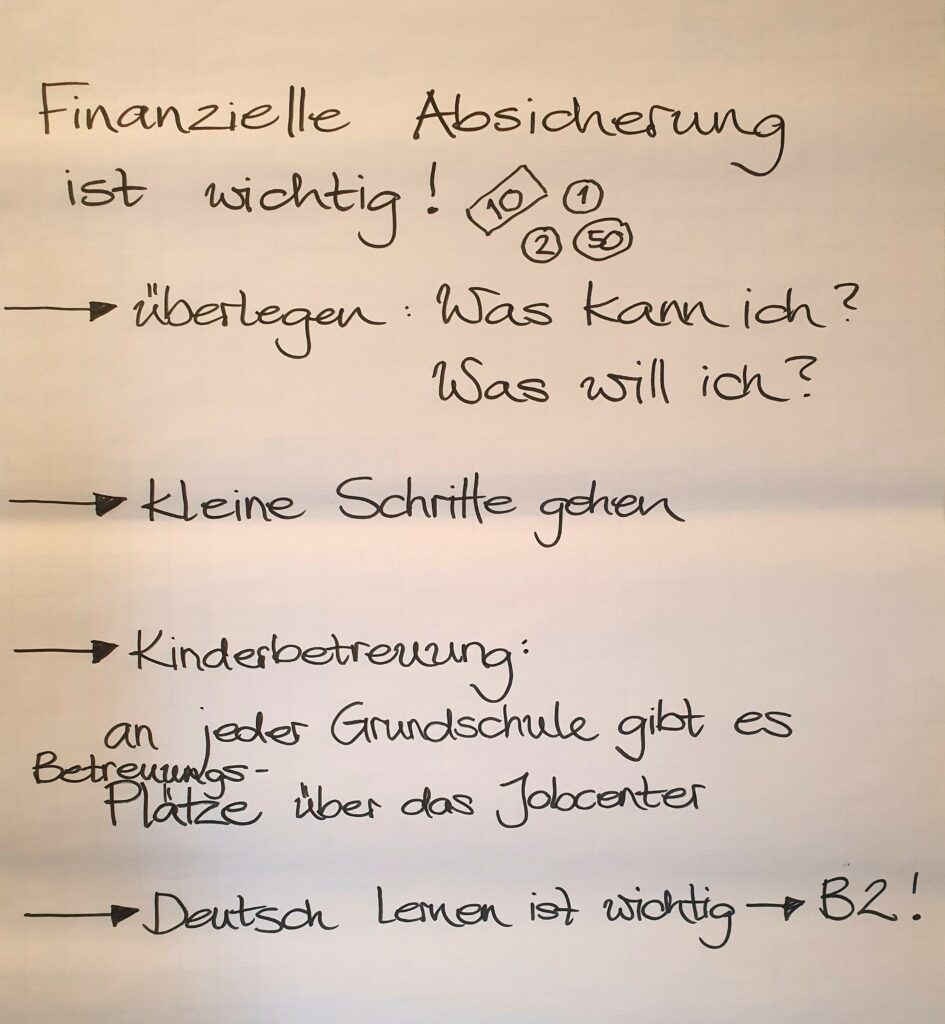 Finanzielle Absicherung
ist wichtig! 10 1
2 50
→ überlegen: Was kann ich?
Was will ich?
→ kleine Schritte gehen
→ Kinderbetreuung:
an jeder Grundschule gibt es
Betreuungs-
Plätze über das Jobcenter
→ Deutsch Lernen ist wichtig → B2!